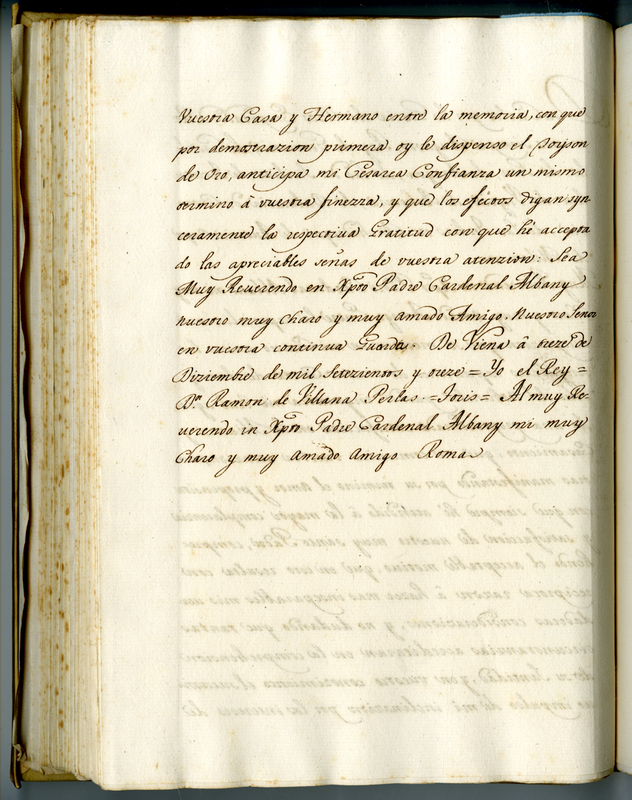 Vuestra Casa y Hermano entre la memoria, con que
por demostrazion primera oy le dispenso el Toyson
de Oro, anticipa mi Cesarea Confianza un mismo
termino â vuestra finezza, y que los efectos digan syn
ceramente la respectiva Gratitud con que hé accepta
do las apreciables señas de vuestra atenzion: Sea
Muy Reuerendo en Xpto Padre Cardenal Albany
nuestro muy charo y muy amado Amigo, Nuestro Señor
en vuestra continua Guarda. De Viena â treze de
Diziembre de mil Setezientos y onze = Yo el Rey =
Dn Ramon de Villana Perlas = Joris = Al muy Re-
uerendo in Xpto Padre Cardenal Albany mi muy
Charo y muy amado Amigo Roma